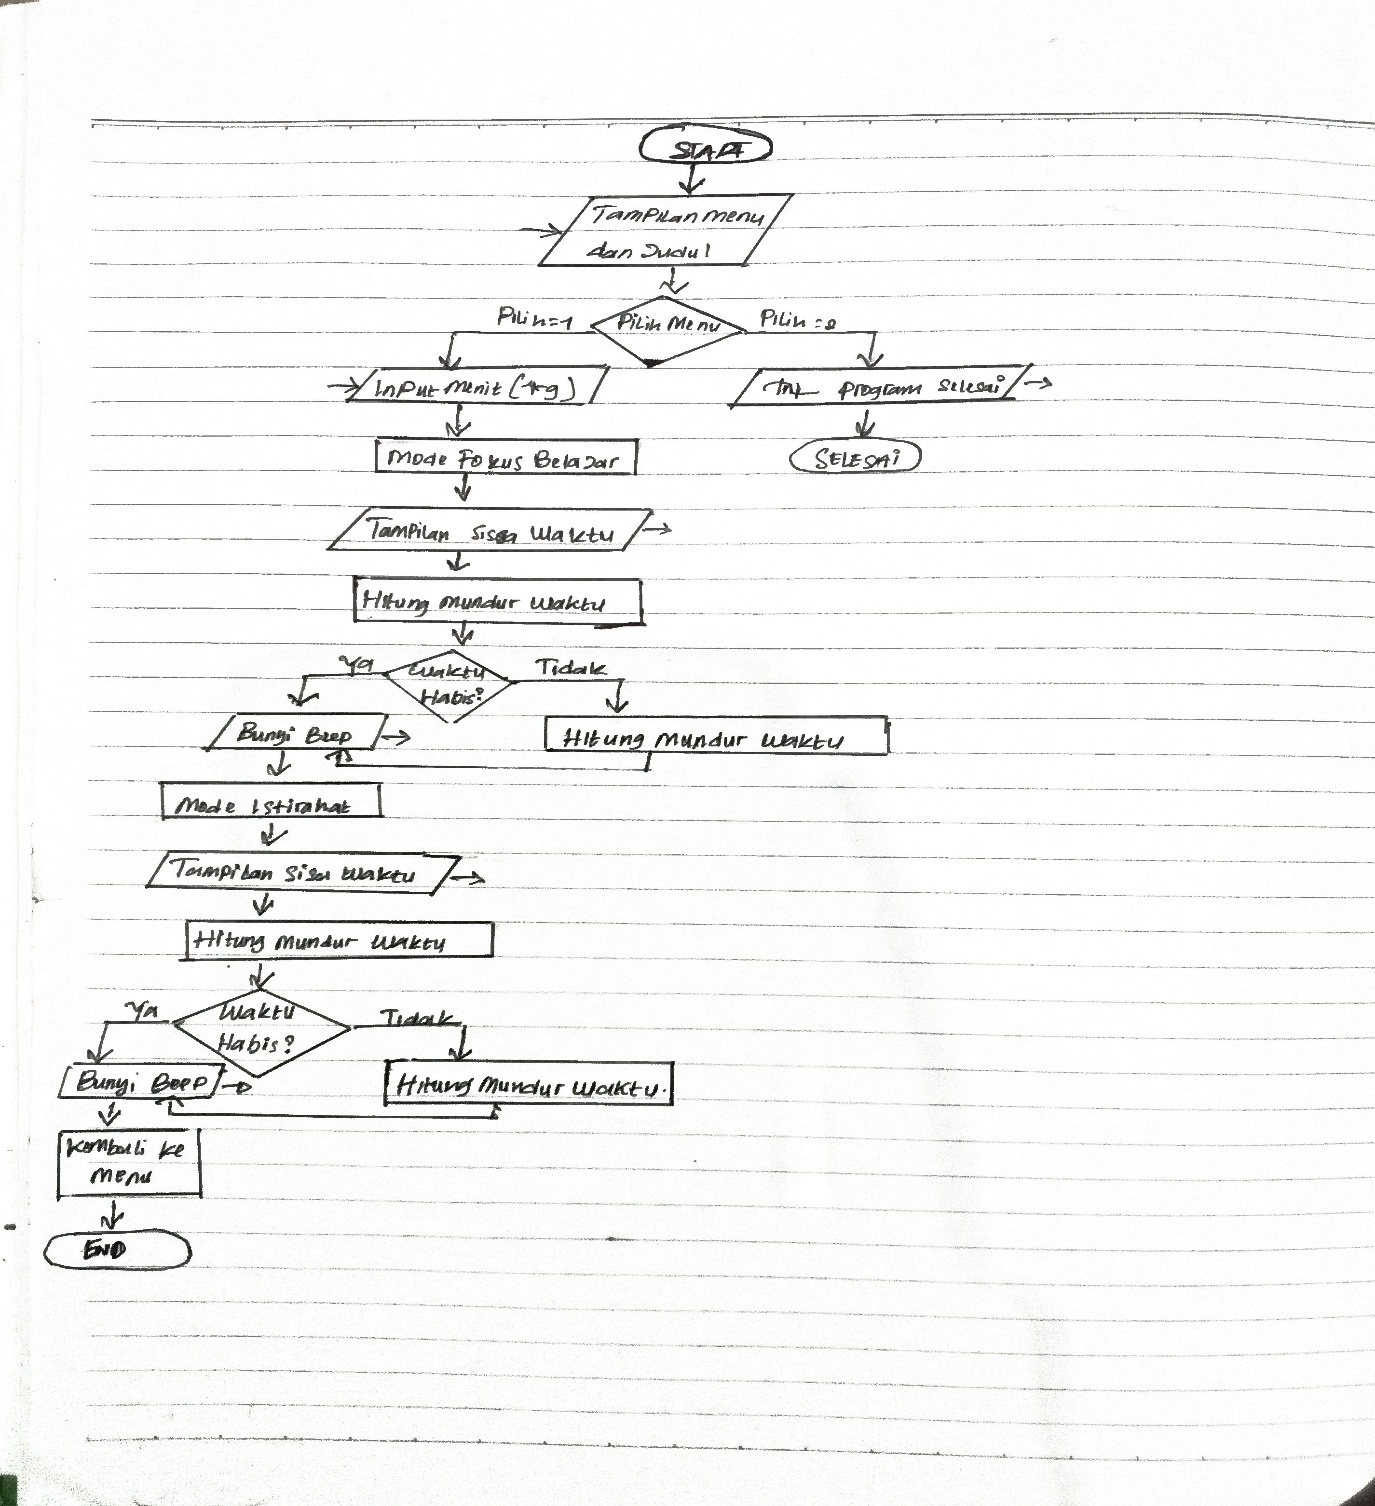 START
Tampilan menu
dan Judul
Pilih=1
Pilih Menu
Pilih =2
Input menit
program selesai
Mode Fokus Belajar
SELESAI
Tampilan sisa waktu
Hitung mundur waktu
Ya
Waktu
Habis?
Tidak
Bunyi Beep
Hitung mundur waktu
Mode Istirahat
Tampilan Sisa waktu
Hitung mundur waktu
Ya
Waktu
Habis?
Tidak
Bunyi Beep
Hitung mundur waktu.
Kembali ke
menu
END